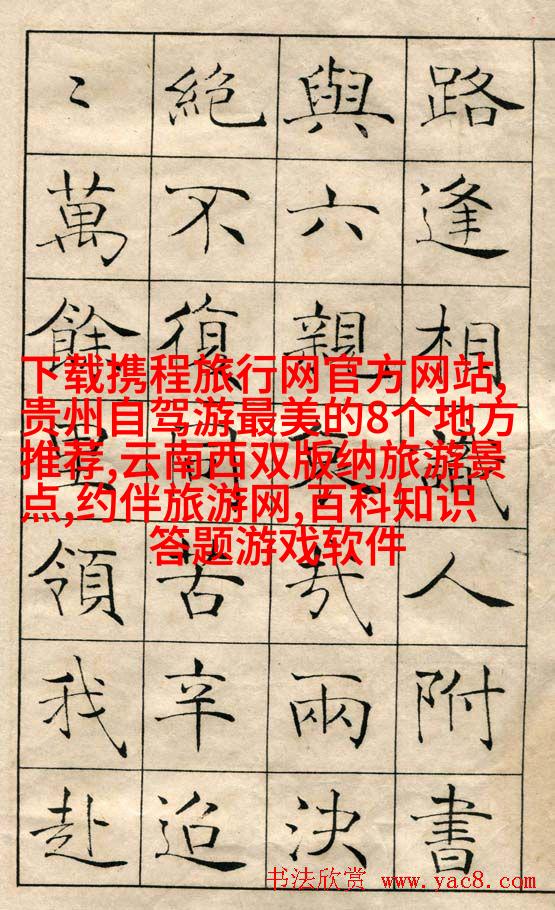 路逢相識人附書
與六親哀哉兩決
絕不復同苦辛迢
〻萬餘里領我赴
下载携程旅行网官方网站,
贵州自驾游最美的8个地方
推荐,云南西双版纳旅游景
点,约伴旅游网,百科知识
答题游戏软件
书法欣赏 www.yac8.com